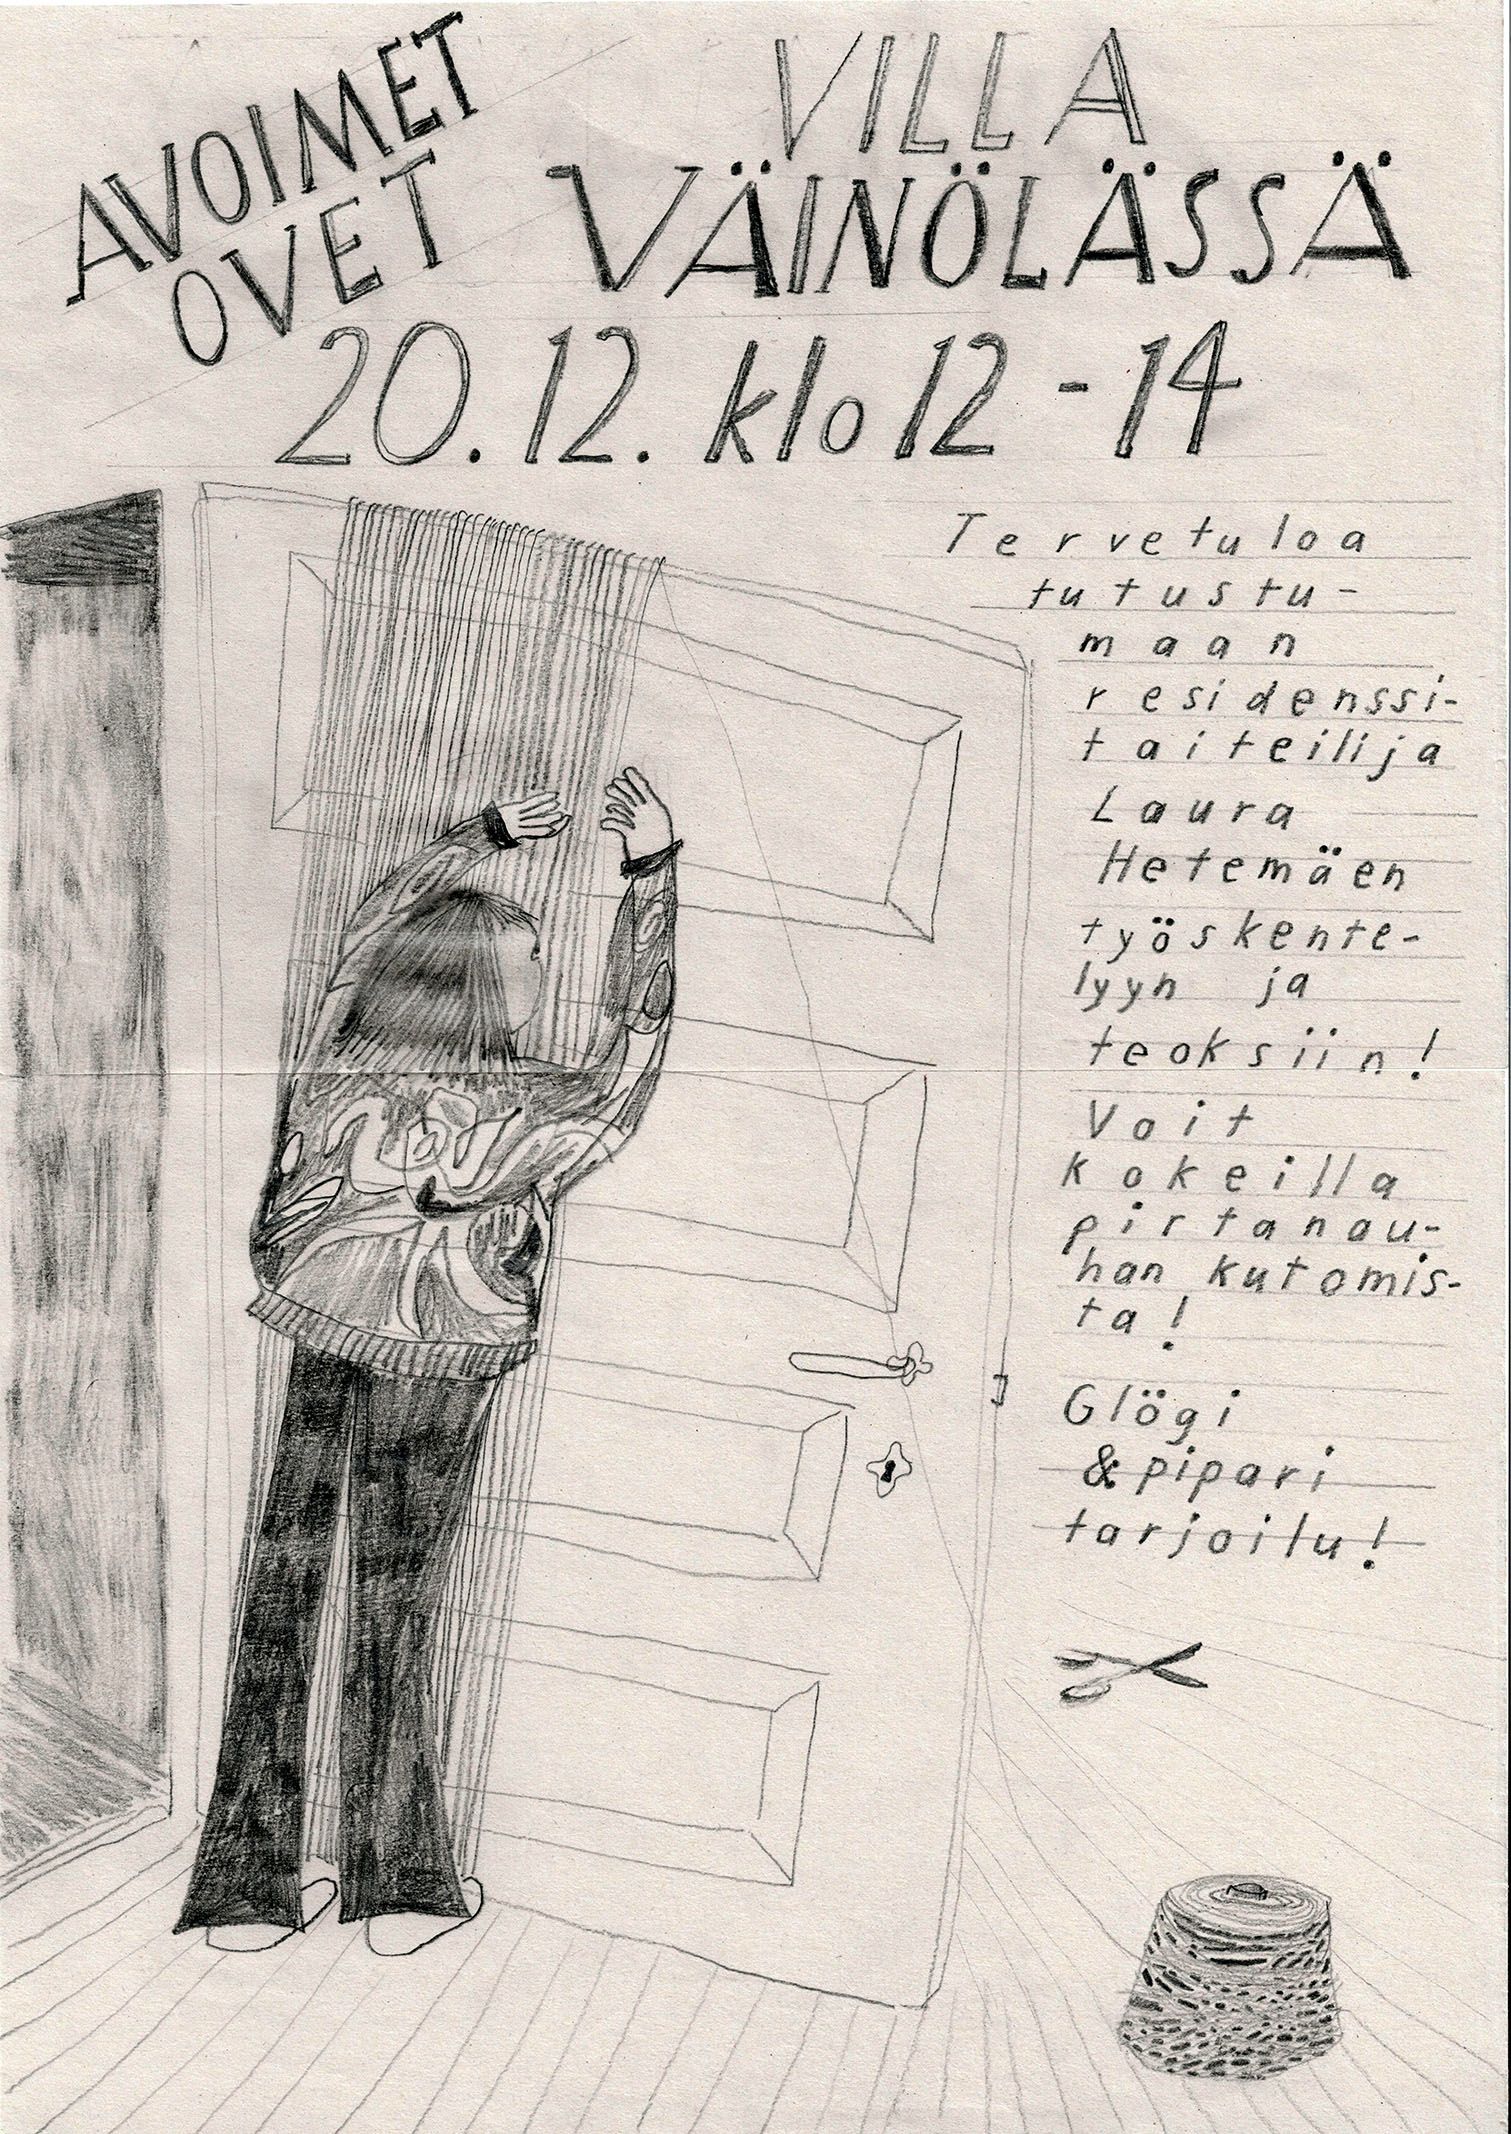 AVOIMET
OVET
VILLA
VÄINÖLÄSSÄ
20.12. klo 12-14
Tervetuloa
tutustu-
maan
residenssi-
taiteilija
Laura
Hetemäen
työskente-
lyyn ja
teoksiin!
Voit
kokeilla
pirtanau-
han kutomis-
ta!
Glögi
& pipari
tarjoilu!